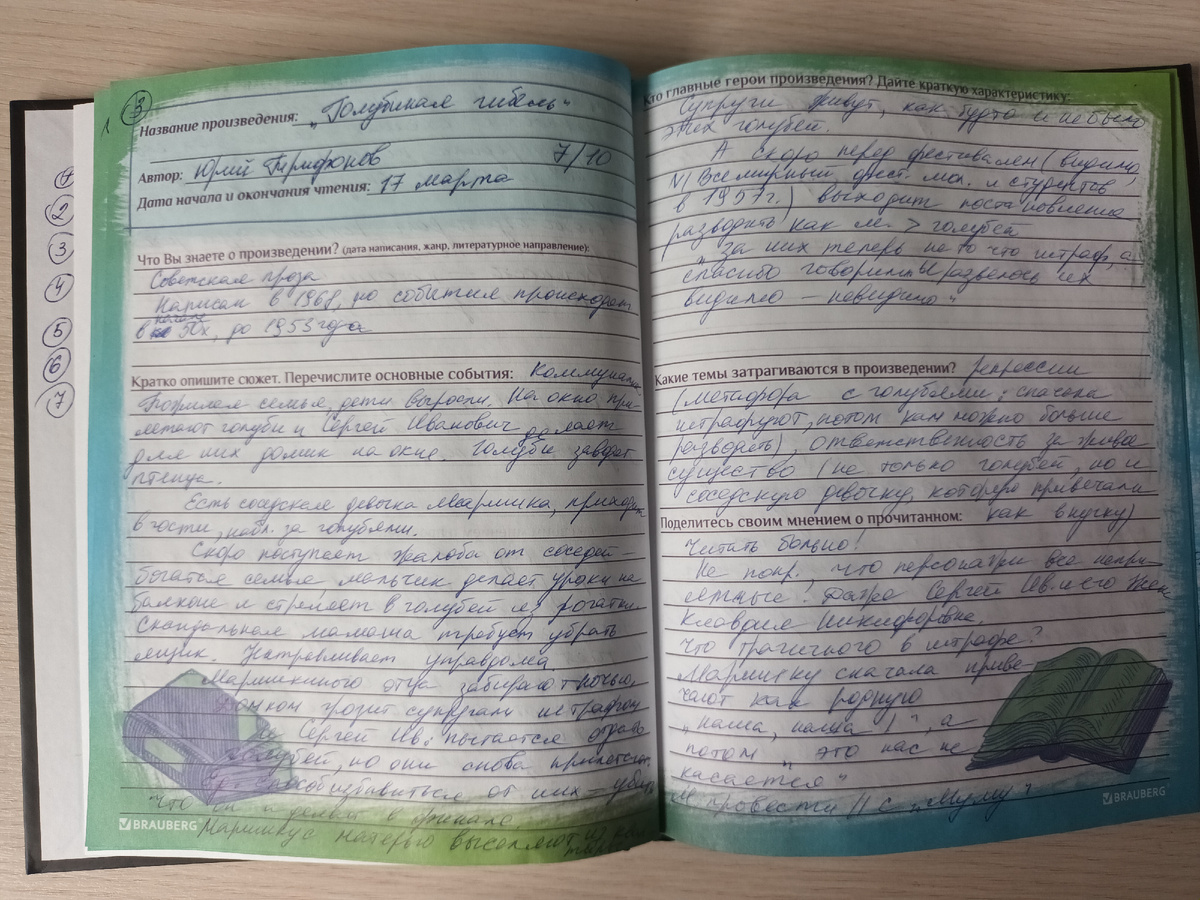 1 3
Название произведения: „Голубиная гибель"
Автор: Юрий Трифонов 7/10
Дата начала и окончания чтения: 17 марта
Что Вы знаете о произведении? (дата написания, жанр, литературное направление):
Советская проза
Написан в 1968, но события происходят
в начале 50х, до 1953 года
Кратко опишите сюжет. Перечислите основные события: Коммуналка.
Пожилая семья, дети выросли. На окно при-
летают голуби и Сергей Иванович делает
для них домик на окне. Голуби заводят
птенца.
Есть соседская девочка Маришка, приходит
в гости, набл. за голубями.
Скоро поступает жалоба от соседей –
богатая семья, мальчик делает уроки на
балконе и стреляет в голубей из рогатки.
Скандальная мамаша требует убрать
ящик. Натравливает управдома
Маришкиного отца забирают ночью,
грозит супругам штрафом
и Сергей Ив. пытается отдать
голубей, но они снова прилетают.
избавиться от них – убить
Что он и делает в финале.
Маришку с матерью выселяют из
1
2
3
4
5
6
7
BRAUBERG
Кто главные герои произведения? Дайте краткую характеристику:
Супруги живут, как будто и не было
этих голубей.
А скоро перед фестивалем (видимо,
VI Всемирный фест. мол. и студентов
в 1957г.) выходит постановление
разводить как м. > голубей
„за них теперь не то что штраф, а
спасибо говорили. И развелось их
видимо – невидимо"
Какие темы затрагиваются в произведении? репрессии
(метафора с голубями: сначала
штрафуют, потом как можно больше
разводить), ответственность за живое
существо (не только голубей, но и
соседскую девочку, которую привечали
Поделитесь своим мнением о прочитанном: как внучку)
Читать больно!
Не понр., что персонажи все непри-
ятные! Даже Сергей Ив. и его жена
Клавдия Никифоровна.
Что трагичного в штрафе?
Маришку сначала приве-
чают как родную
„наша, наша!", а
потом „это нас не
касается"
М провести // с „Муму"?
BRAUBERG